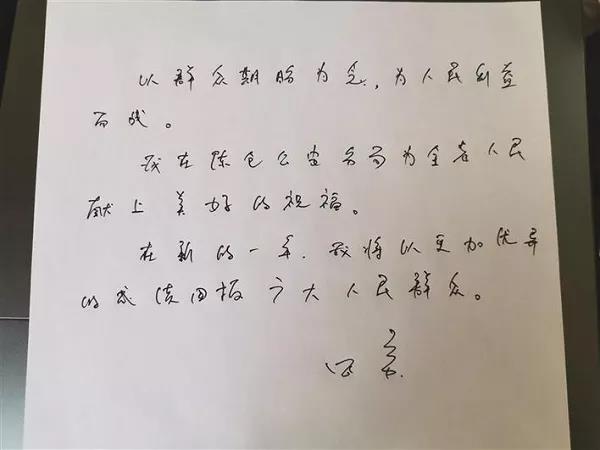 以群众期盼为念，为人民利益
而战。
我在陈仓公安分局为全省人民
献上美好的祝福。
在新的一年，我将以更加优异
的成绩回报广大人民群众。